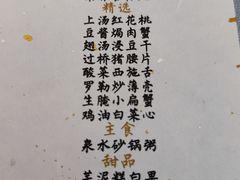 精选
上汤红花桃
豆酱焗肉蟹
翅汤浸豆干
过桥猪腰片
酸菜西施舌
罗勒炒薄壳
生腌小扁蟹
鸡油白菜心
主食
泉水砂锅粥
甜品
芋泥糕白果